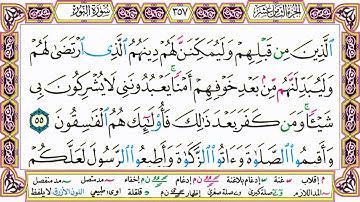 الجزء الثامن عشر ٣٥٧ سورة النور
الَّذِينَ مِن قَبْلِهِمْ وَلَيُمَكِّنَنَّ لَهُمْ دِينَهُمُ الَّذِى ارْتَضَىٰ لَهُمْ
وَلَيُبَدِّلَنَّهُم مِّنۢ بَعْدِ خَوْفِهِمْ أَمْنًا ۚ يَعْبُدُونَنِى لَا يُشْرِكُونَ بِى
شَيْـًٔا ۚ وَمَن كَفَرَ بَعْدَ ذَٰلِكَ فَأُو۟لَـٰٓئِكَ هُمُ الْفَـٰسِقُونَ ٥٥
وَأَقِيمُوا۟ الصَّلَوٰةَ وَءَاتُوا۟ الزَّكَوٰةَ وَأَطِيعُوا۟ الرَّسُولَ لَعَلَّكُمْ